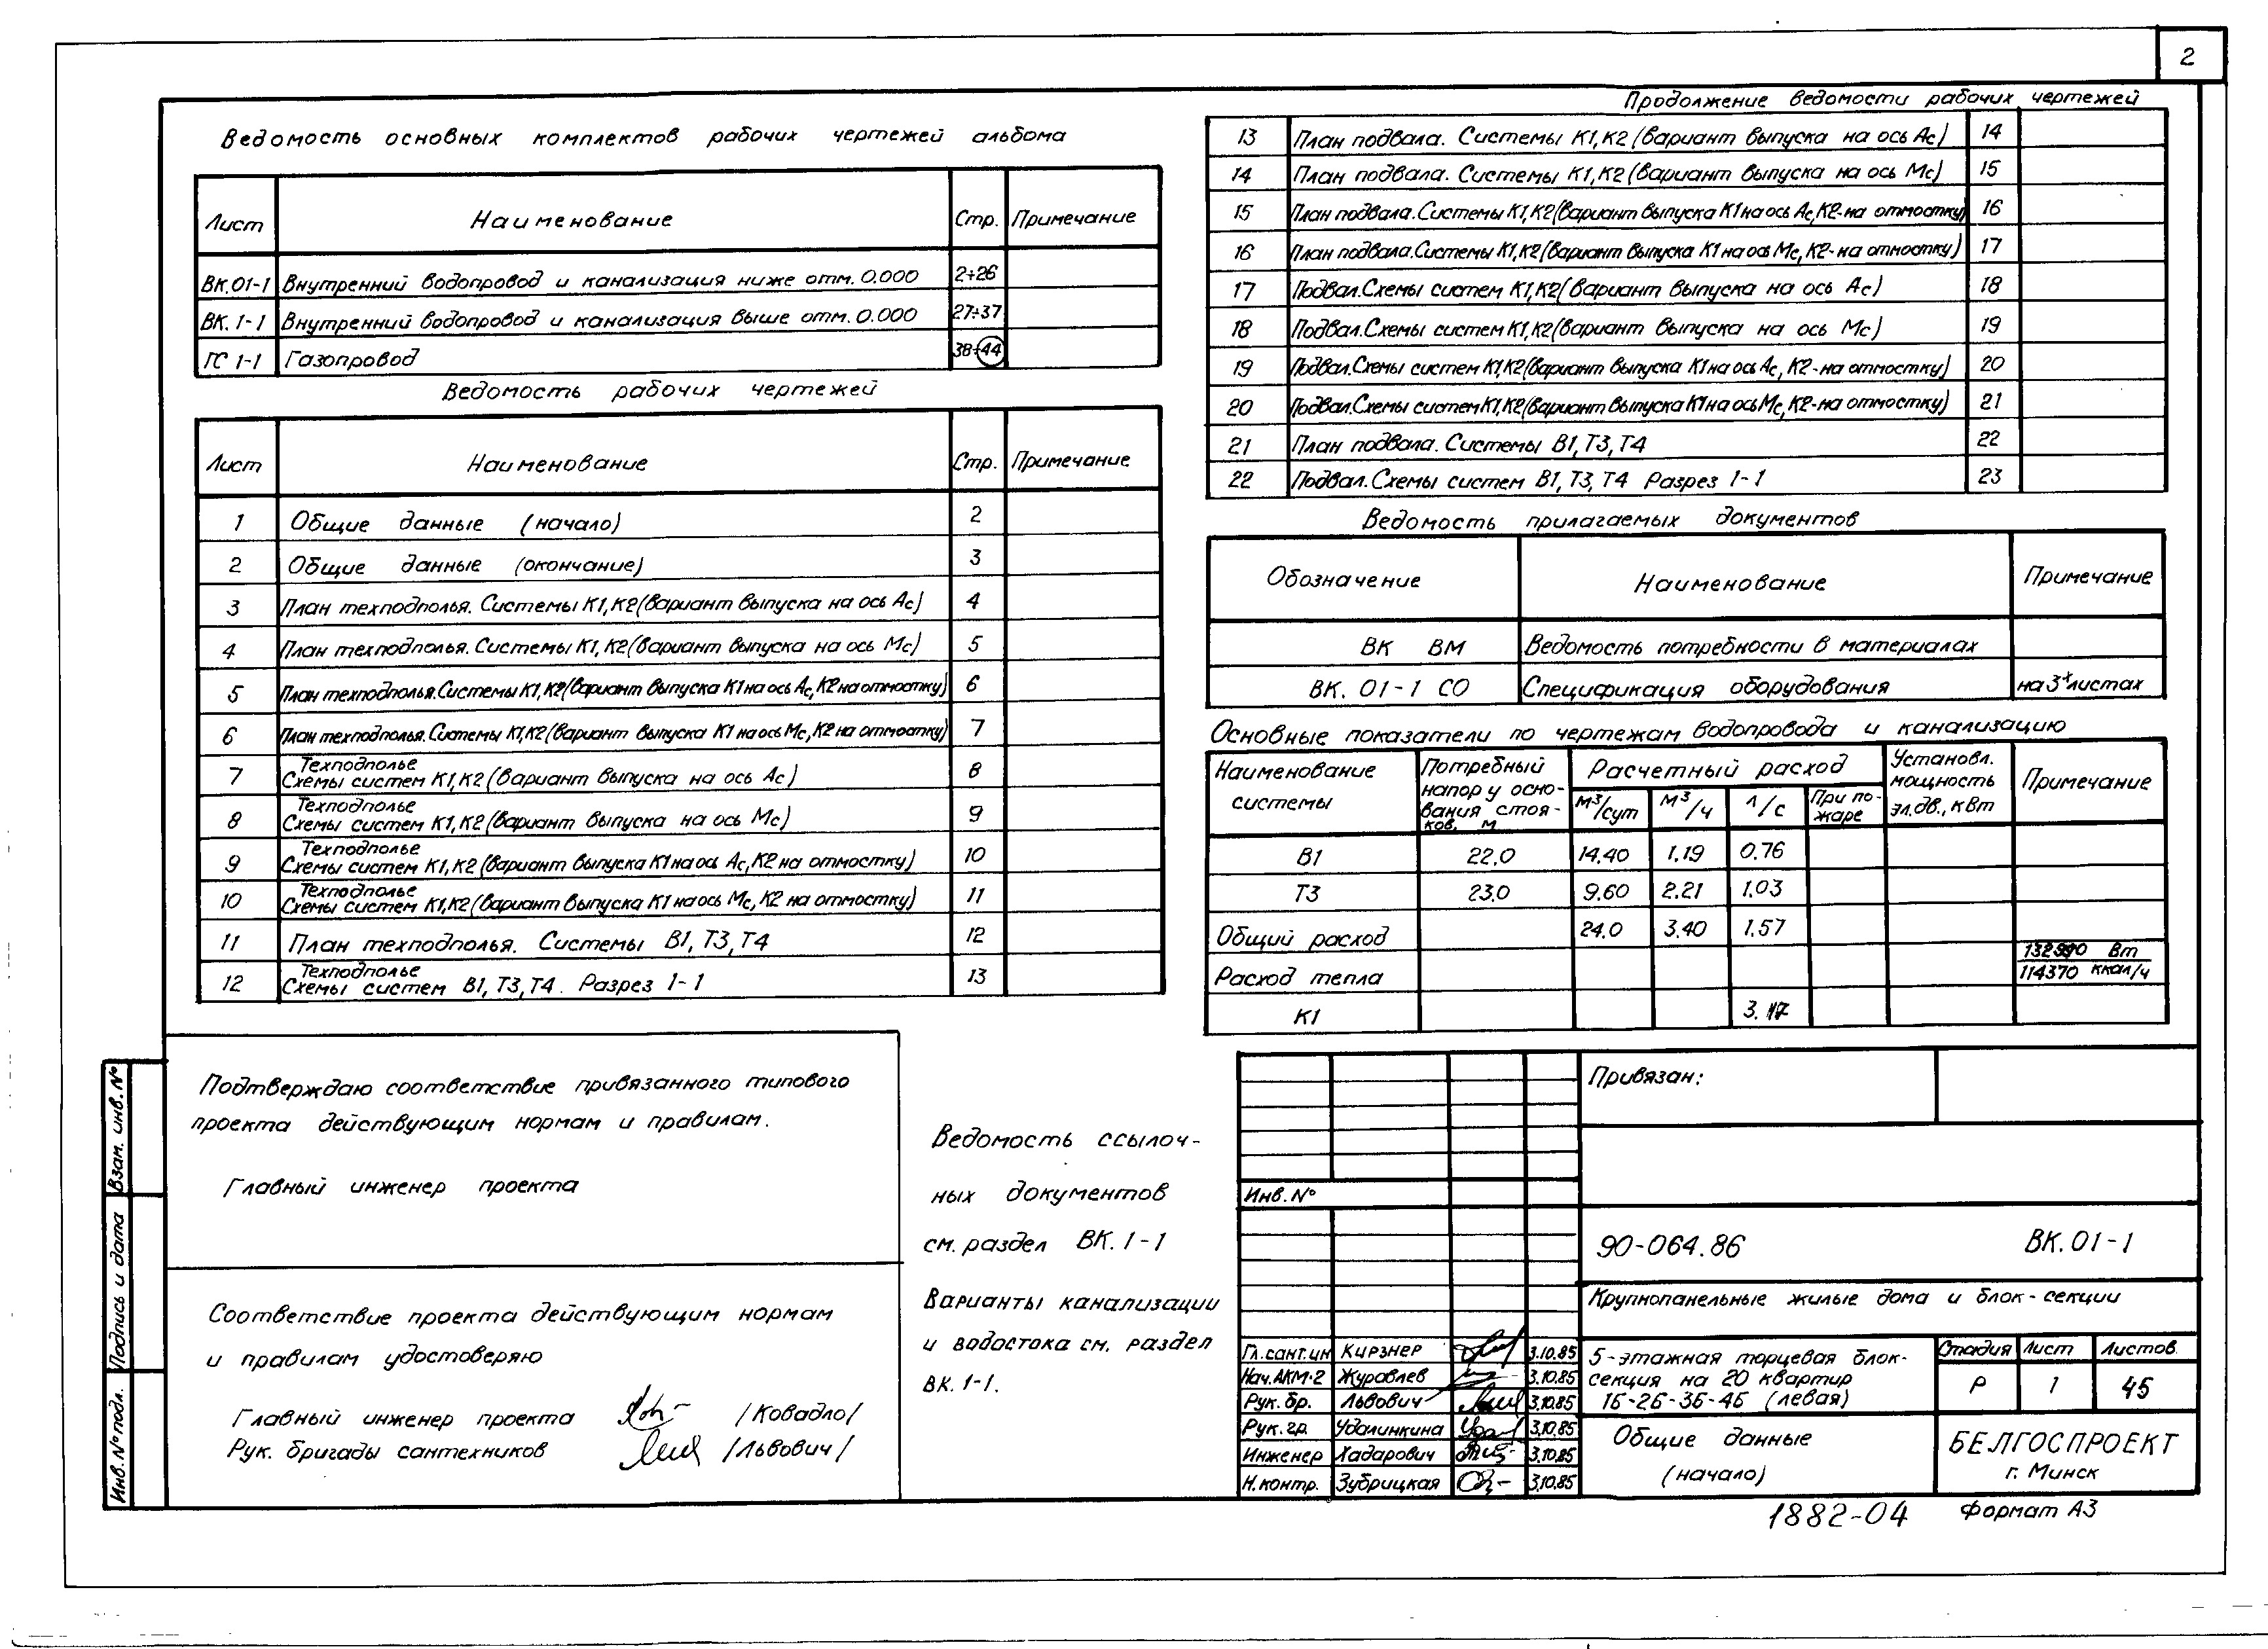 2
Ведомость основных комплектов рабочих чертежей альбома
Лист Наименование Стр. Примечание
ВК.01-1 Внутренний водопровод и канализация ниже отм. 0.000 2÷26
ВК.1-1 Внутренний водопровод и канализация выше отм. 0.000 27÷37
ГС 1-1 Газопровод 38÷44
Ведомость рабочих чертежей
Лист Наименование Стр. Примечание
1 Общие данные (начало) 2
2 Общие данные (окончание) 3
3 План техподполья. Системы К1,К2 (вариант выпуска на ось Ас) 4
4 План техподполья. Системы К1,К2 (вариант выпуска на ось Мс) 5
5 План техподполья. Системы К1,К2 (вариант выпуска К1 на ось Ас, К2 на отмостку) 6
6 План техподполья. Системы К1,К2 (вариант выпуска К1 на ось Мс, К2 на отмостку) 7
7 Техподполье
Схемы систем К1,К2 (вариант выпуска на ось Ас) 8
8 Техподполье
Схемы систем К1,К2 (вариант выпуска на ось Мс) 9
9 Техподполье
Схемы систем К1,К2 (вариант выпуска К1 на ось Ас, К2 на отмостку) 10
10 Техподполье
Схемы систем К1,К2 (вариант выпуска К1 на ось Мс, К2 на отмостку) 11
11 План техподполья. Системы В1, Т3, Т4 12
12 Техподполье
Схемы систем В1, Т3, Т4. Разрез 1-1 13
Продолжение ведомости рабочих чертежей
13 План подвала. Системы К1,К2 (вариант выпуска на ось Ас) 14
14 План подвала. Системы К1,К2 (вариант выпуска на ось Мс) 15
15 План подвала. Системы К1,К2 (вариант выпуска К1 на ось Ас, К2-на отмостку) 16
16 План подвала. Системы К1,К2 (вариант выпуска К1 на ось Мс, К2-на отмостку) 17
17 Подвал. Схемы систем К1,К2 (вариант выпуска на ось Ас) 18
18 Подвал. Схемы систем К1,К2 (вариант выпуска на ось Мс) 19
19 Подвал. Схемы систем К1,К2 (вариант выпуска К1 на ось Ас, К2-на отмостку) 20
20 Подвал. Схемы систем К1,К2 (вариант выпуска К1 на ось Мс, К2-на отмостку) 21
21 План подвала. Системы В1, Т3, Т4 22
22 Подвал. Схемы систем В1, Т3, Т4 Разрез 1-1 23
Ведомость прилагаемых документов
Обозначение Наименование Примечание
ВК ВМ Ведомость потребности в материалах
ВК. 01-1 СО Спецификация оборудования на 3х листах
Основные показатели по чертежам водопровода и канализацию
Наименование системы Потребный напор у основания стояков, м Расчетный расход Установл. мощность эл.дв., кВт Примечание
м³/сут м³/ч л/с При пожаре
В1 22.0 14.40 1.19 0.76
Т3 23.0 9.60 2.21 1.03
Общий расход 24.0 3.40 1.57
Расход тепла Вт
114370 ккал/ч
К1
Подтверждаю соответствие привязанного типового
проекта действующим нормам и правилам.
Главный инженер проекта
Соответствие проекта действующим нормам
и правилам удостоверяю
Главный инженер проекта /Ковадло/
Рук. бригады сантехников /Львович/
Ведомость ссылоч-
ных документов
см. раздел ВК. 1-1
Варианты канализации
и водостока см. раздел
ВК. 1-1.
Взам. инв. №
Подпись и дата
Инв. № подл.
Привязан:
Инв. №
90-064.86 ВК. 01-1
Крупнопанельные жилые дома и блок-секции
Гл.сант.ин Кирзнер 3.10.85
Нач.АКМ-2 Журавлев 3.10.85
Рук. бр. Львович 3.10.85
Рук. гр. Удалинкина 3.10.85
Инженер Хадарович 3.10.85
Н.контр. Зубрицкая 3.10.85
5-этажная торцевая блок-
секция на 20 квартир
1Б-2Б-3Б-4Б (левая)
Стадия Лист Листов.
Р 1 45
Общие данные
(начало)
БЕЛГОСПРОЕКТ
г. Минск
1882-04 Формат А3